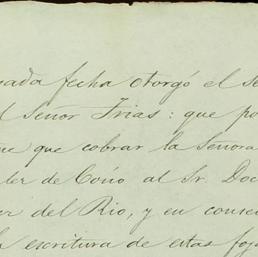 sada fecha otorgó el Se
l Señor Frias: que po
ne que cobrar la Señora
ler de Coño al Sr. Doc
er del Rio, y en conse
la escritura de estas foj